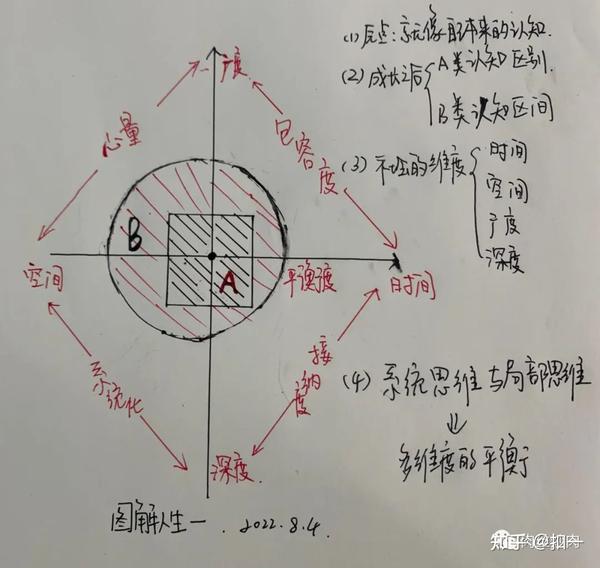 (1) 原点:就像自己本来的认知.
(2) 成长之后
A类认知区别.
B类认知区间
(3) 不同的维度
时间
空间
广度
深度
(4) 系统思维与局部思维
⇓
多维度的平衡
广度
心量
包容度
B
A
空间
平衡度
时间
系统化
接纳度
深度.
图解人生一. 2022.8.4.
知乎 @扣肉